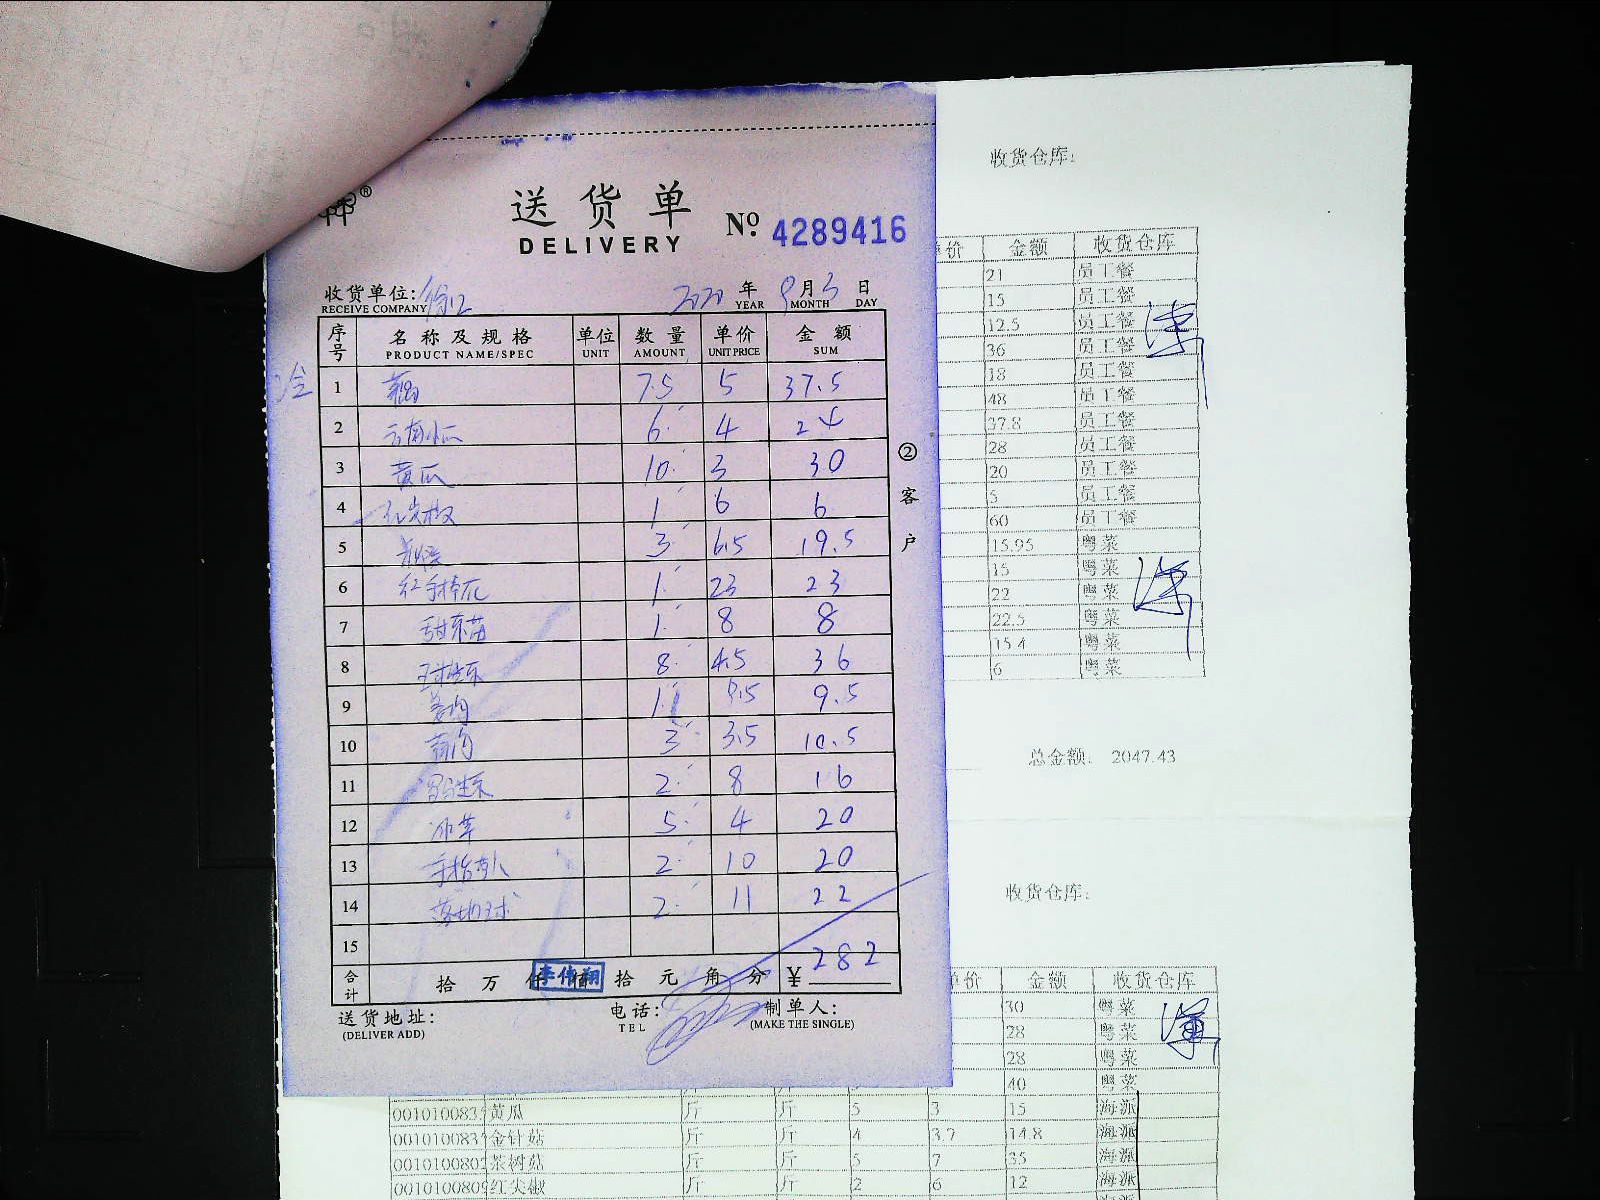 送货单
DELIVERY
№ 4289416
收货单位:徐汇 2020年9月3日
RECEIVE COMPANY YEAR MONTH DAY
序号 名称及规格 单位 数量 单价 金额
PRODUCT NAME/SPEC UNIT AMOUNT UNIT PRICE SUM
冷
1 7.5 5 37.5
2 云南小瓜 6 4 24
3 黄瓜 10 3 30
4 红尖椒 1 6 6
5 3 6.5 19.5
6 1 23 23
7 甜豆苗 1 8 8
8 8 4.5 36
9 姜肉 1 9.5 9.5
10 3 3.5 10.5
11 罗马生菜 2 8 16
12 冰草 5 4 20
13 2 10 20
14 2 11 22
15
合计 拾 万 仟 佰 拾 元 角 分 ¥ 282
李伟翔
送货地址:
(DELIVER ADD)
电话:
TEL
制单人:
(MAKE THE SINGLE)
②客户
收货仓库:
单价 金额 收货仓库
21 员工餐
15 员工餐
12.5 员工餐
36 员工餐
18 员工餐
48 员工餐
37.8 员工餐
28 员工餐
20 员工餐
5 员工餐
60 员工餐
15.95 粤菜
15 粤菜
22 粤菜
22.5 粤菜
15.4 粤菜
6 粤菜
总金额: 2047.43
收货仓库:
单价 金额 收货仓库
30 粤菜
28 粤菜
28 粤菜
40 粤菜
0010100835 黄瓜 斤 斤 5 3 15 海派
0010100837 金针菇 斤 斤 4 3.7 14.8 海派
0010100802 茶树菇 斤 斤 5 7 35 海派
0010100809 红尖椒 斤 斤 2 6 12 海派